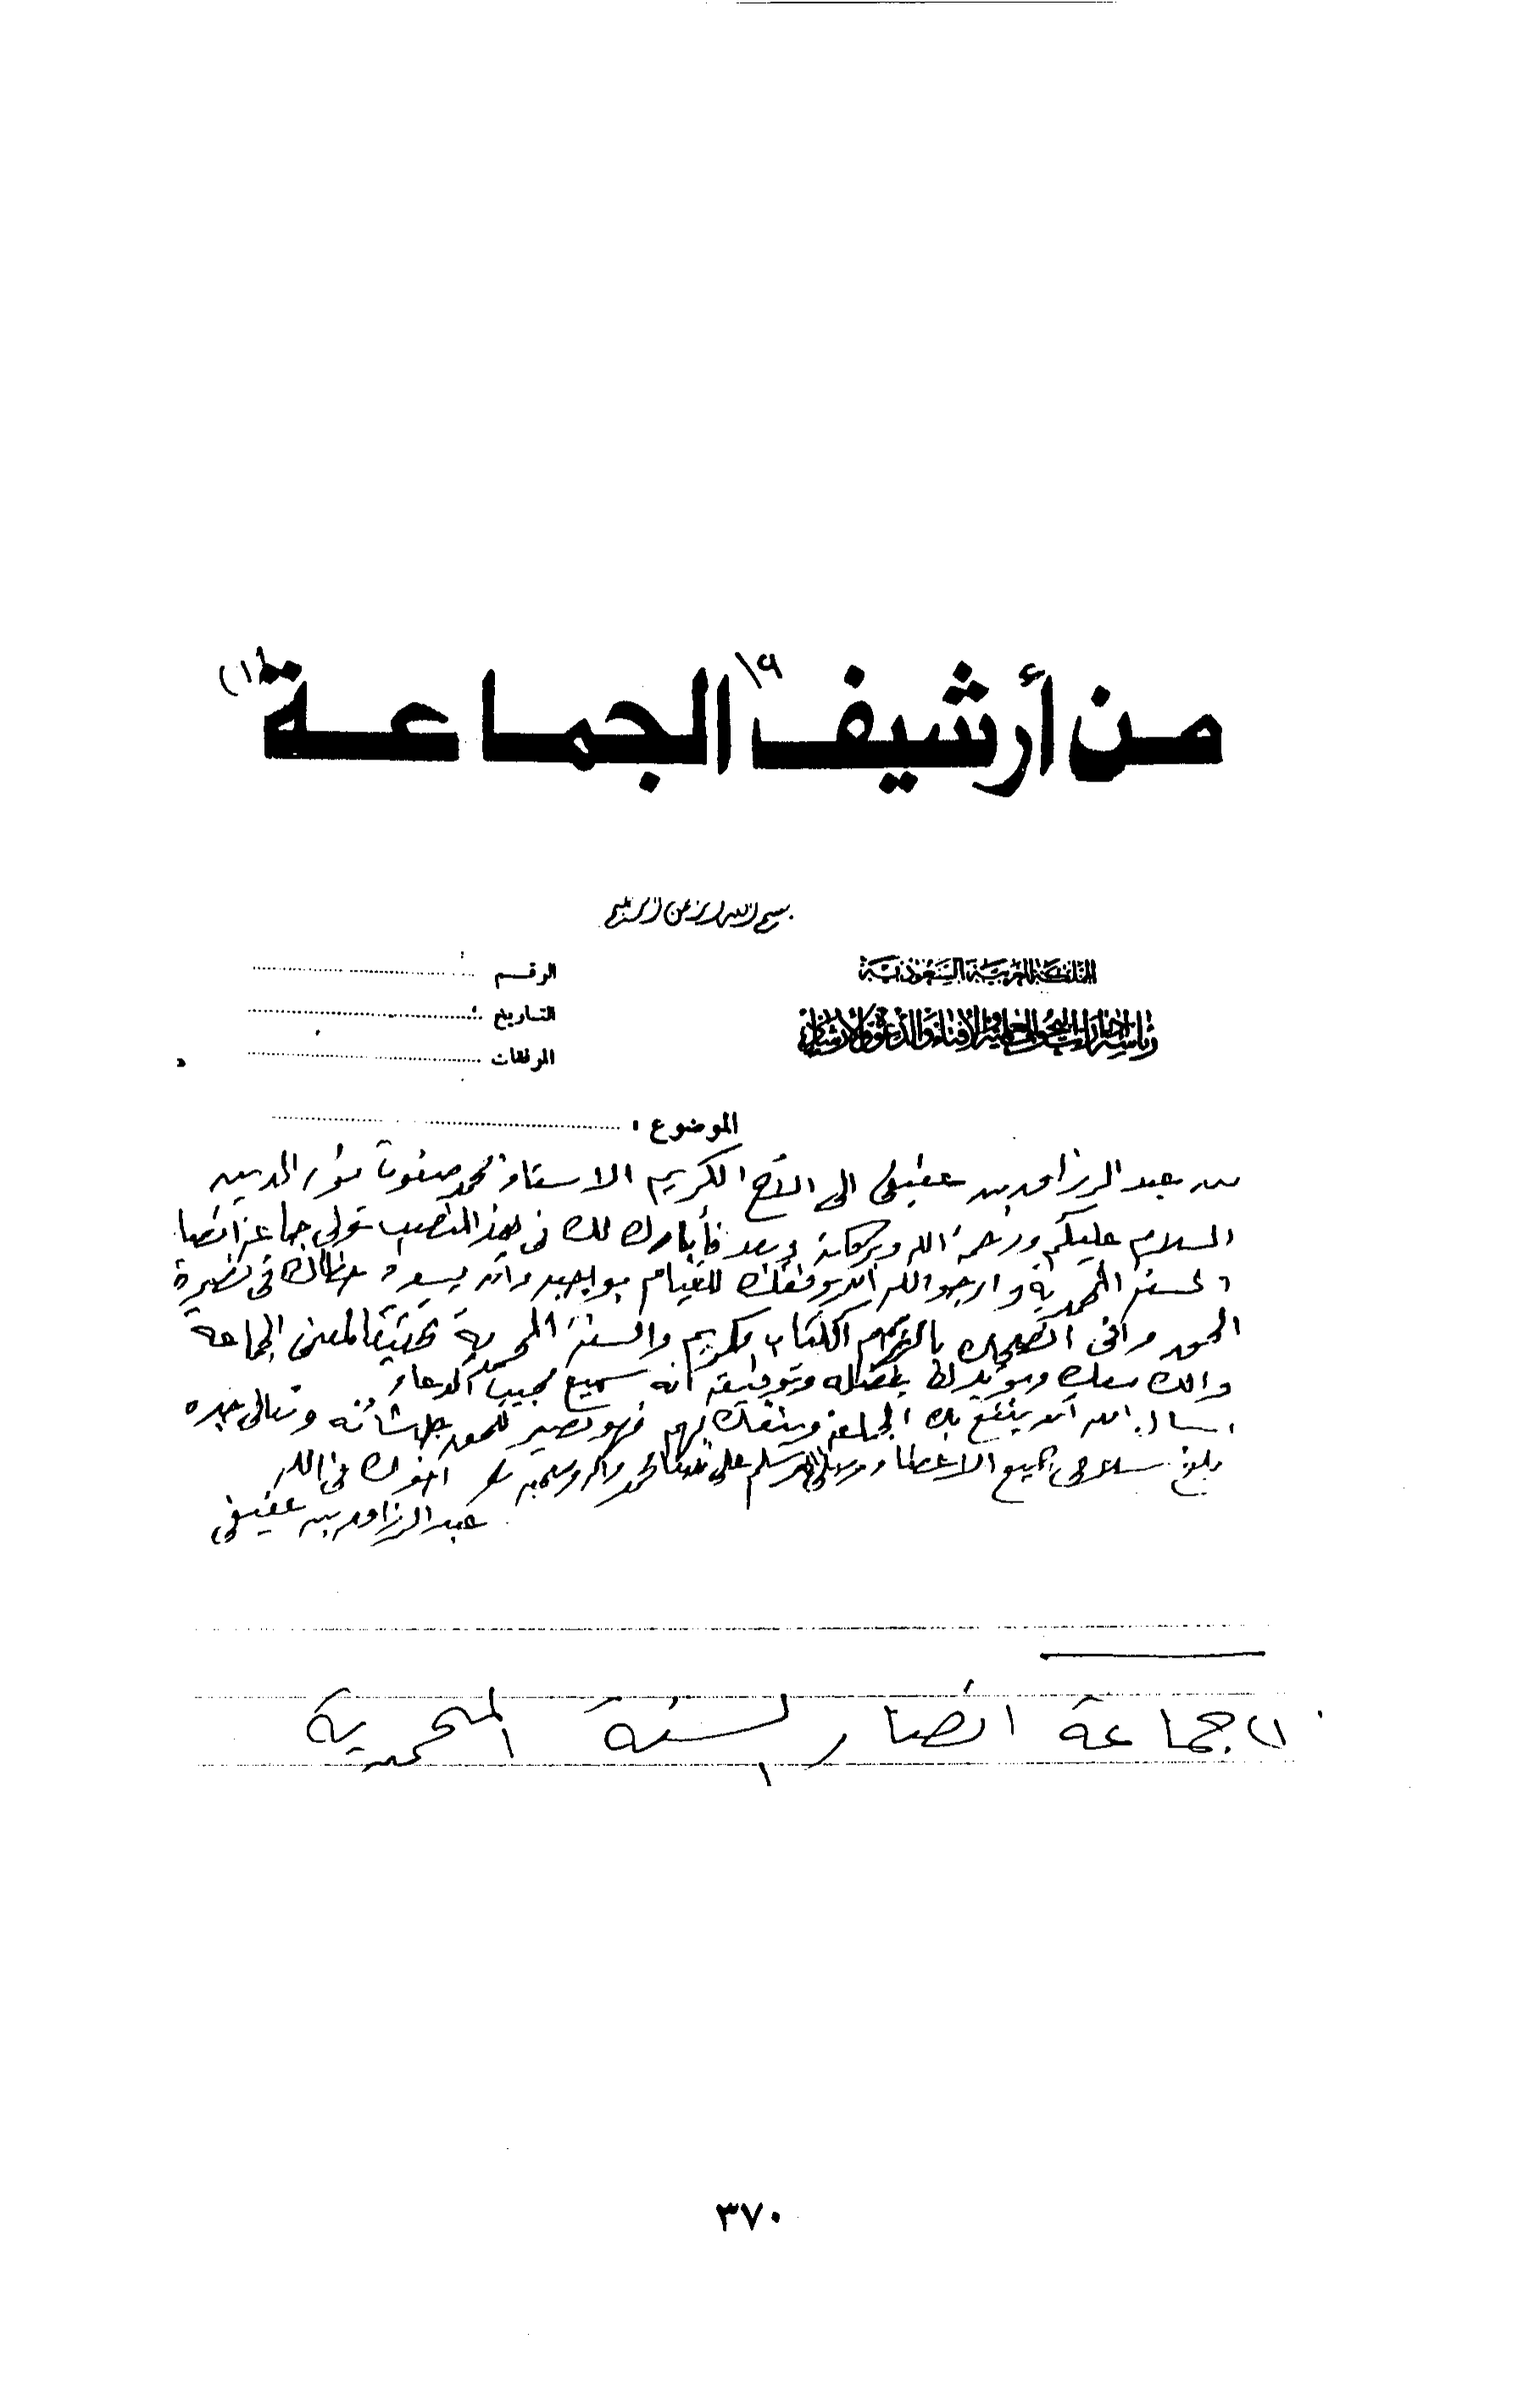 من أرشيف الجماعة (١)
بسم الله الرحمن الرحيم
المملكة العربية السعودية
رئاسة إدارات البحوث العلمية والافتاء والدعوة والإرشاد
الرقم
التاريخ
المرفقات
الموضوع :
من عبد الرزاق بن عفيفى الى الأخ الكريم الاستاذ محمد صفوت نور الدين
السلام عليكم ورحمة الله وبركاته وبعد فأبارك لك فى هذا المنصب تولى جماعة انصا
السنة المحمدية وارجو الله أن يوفقك للقيام بواجبه وأن يسدد خطاك فى نصرة
الحق وانى انصحك بالتزام الكتاب الكريم والسنة المحمدية تحقيقا لمعنى الجماعة
والله معك ويؤيدك بفضله وتوفيقه انه سميع مجيب الدعاء
اسأل الله أن ينفع بك الجماعة وينفعك بهم فهو نصير للحق جل شأنه وتعالى جده
بلغ سلامى جميع الاعضاء وصلى الله وسلم على نبينا محمد وآله وصحبه اخوك فى الله
عبد الرزاق بن عفيفى
(١) جماعة انصار السنة المحمدية
٣٧٠